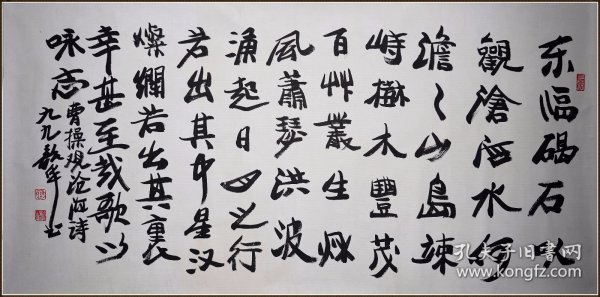 东临碣石以
觀滄海水何
澹〻山島竦
峙樹木豐茂
百艸叢生秋
風蕭瑟洪波
涌起日月之行
若出其中星汉
燦爛若出其裏
幸甚至哉歌以
咏志
曹操观沧海诗
九九
孔夫子旧书网
www.kongfz.com